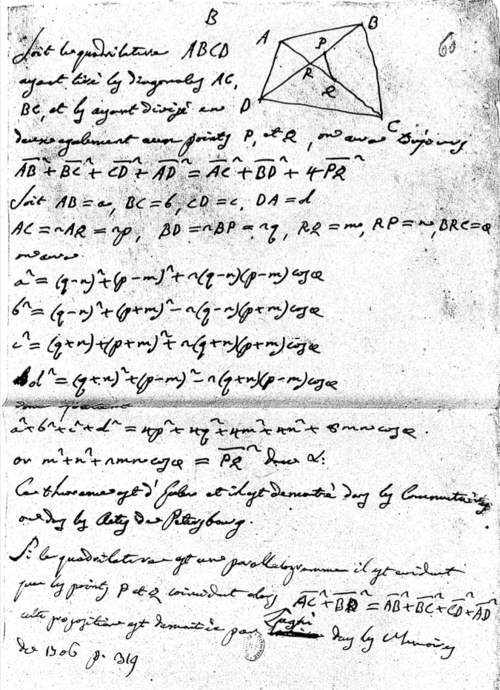 B
60
A B P R Q D C
Soit le quadrilatere ABCD
ayant tiré les diagonales AC,
BC, et les ayant divisé en
deux egalement aux points P, et Q, on aura toujours
AB² + BC² + CD² + AD² = AC² + BD² + 4PQ²
Soit AB = a, BC = b, CD = c, DA = d
AC = 2AQ = 2p, BD = 2BP = 2q, RQ = m, RP = n, BRC = α
on aura
a² = (q-n)² + (p-m)² + 2(q-n)(p-m) cos α
b² = (q-n)² + (p+m)² - 2(q-n)(p+m) cos α
c² = (q+n) + (p+m)² + 2(q+n)(p+m) cos α
d² = (q+n)² + (p-m)² - 2(q+n)(p-m) cos α
a² + b² + c² + d² = 4p² + 4q² + 4m² + 4n² + 8mn cos α.
or m² + n² + 2mn cos α = PQ² donc &:
Ce theoreme est d'Euler et il est demontré dans les
ou dans les Actes de Petersbourg.
Si le quadrilatere est une parallelogramme il est evident
que les points P et Q coincident alors AC² + BD² = AB² + BC² + CD² + AD²
cette proposition est demontrée par dans les Memoires
de 1706 p. 319